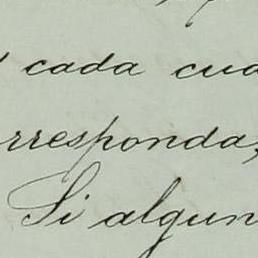 cada cua
rresponda,
Si algun